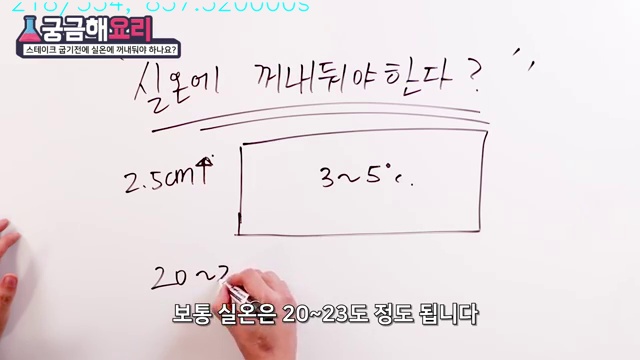 218/334, 857.520000s
궁금해요리
스테이크 굽기전에 실온에 꺼내둬야 하나요?
"실온에 꺼내둬야한다?"
2.5cm↑
3~5°c.
20~2
보통 실온은 20~23도 정도 됩니다